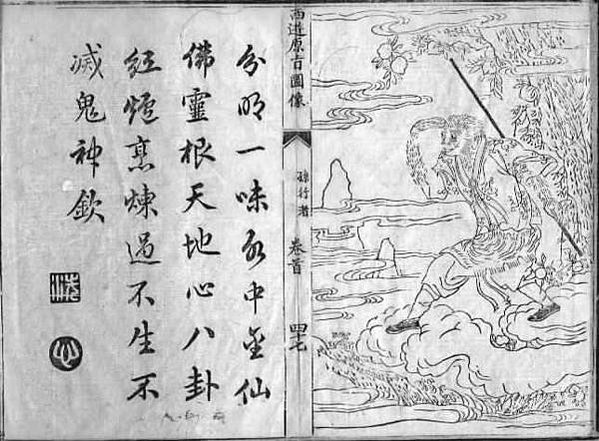 西遊原旨圖像
孫行者
卷首
四十七
分明一味水中金仙
佛靈根天地心八卦
紅爐烹煉過不生不
滅鬼神欽